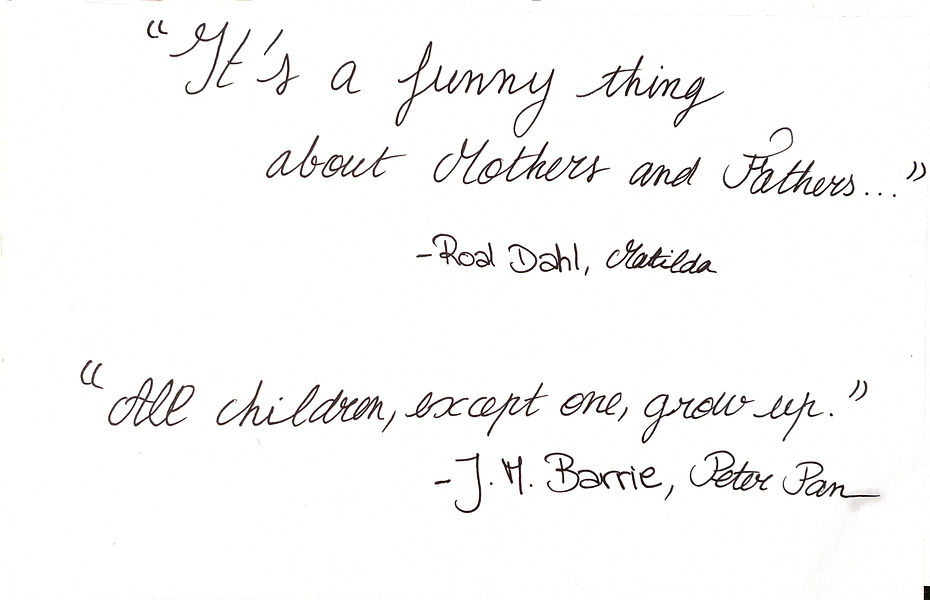 “It's a funny thing
about Mothers and Fathers...”
-Roal Dahl, Matilda
“All children, except one, grow up.”
-J. M. Barrie, Peter Pan